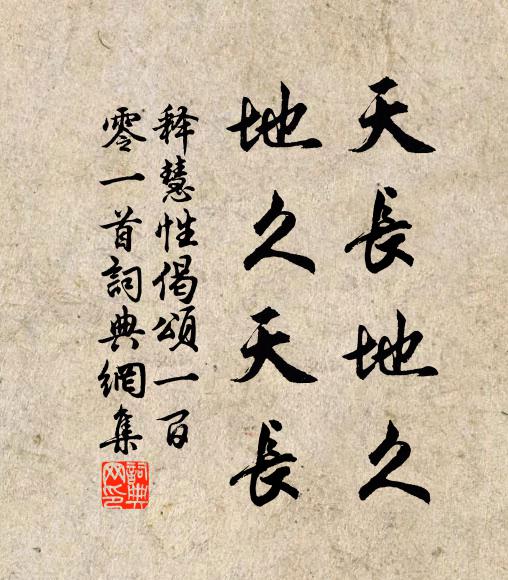 天長地久
地久天長
释慧性偈頌一百
零一首詞典網集
詞典网印